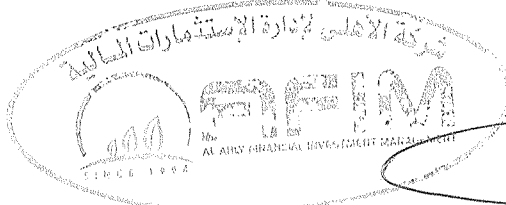 شركة الأهلي لإدارة الإستثمارات المالية
AFIM
AL AHLY FINANCIAL INVESTMENT MANAGEMENT
SINCE 1994